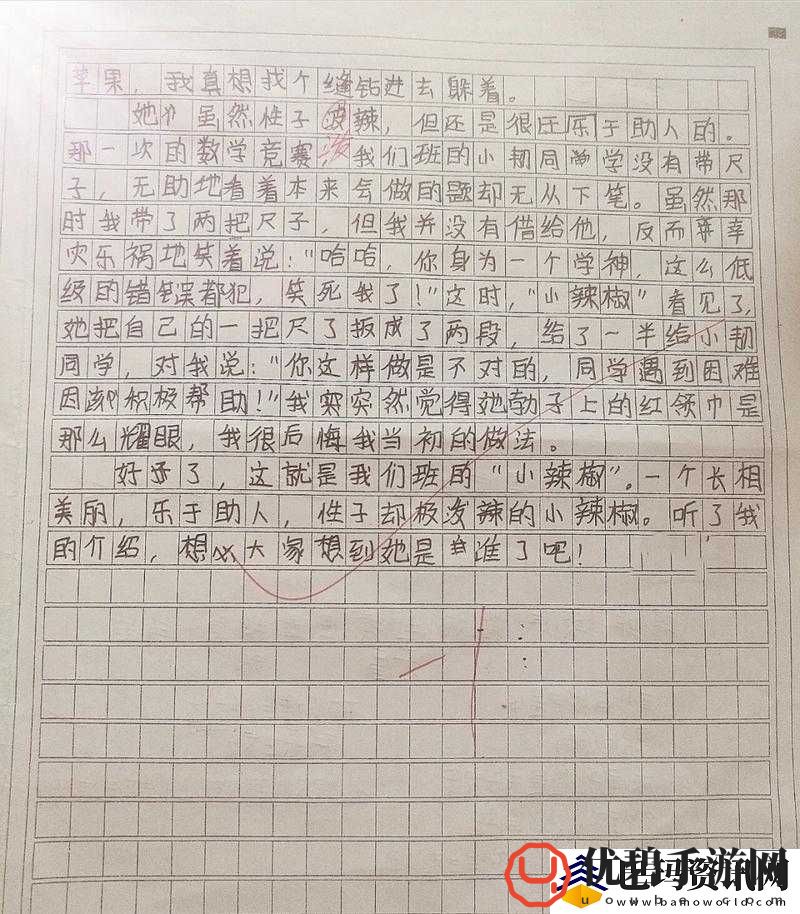 苹果，我真想找个缝钻进去躲着。
她虽然性子泼辣，但还是很乐于助人的。
那一次的数学竞赛我们班的小韧同学没有带尺
子，无助地看着本来会做的题却无从下笔。虽然那
时我带了两把尺子，但我并没有借给他，反而幸
灾乐祸地笑着说：“哈哈，你身为一个学神，这么低
级的错误都犯，笑死我了！”这时，“小辣椒”看见了，
她把自己的一把尺了扳成了两段，给了一半给小韧
同学，对我说：“你这样做是不对的，同学遇到困难
因该积极帮助！”我突然觉得她勃子上的红领巾是
那么耀眼，我很后悔我当初的做法。
好了，这就是我们班的“小辣椒”。一个长相
美丽，乐于助人，性子却极泼辣的小辣椒。听了我
的介绍，想必大家想到她是谁了吧！
优碧手游网